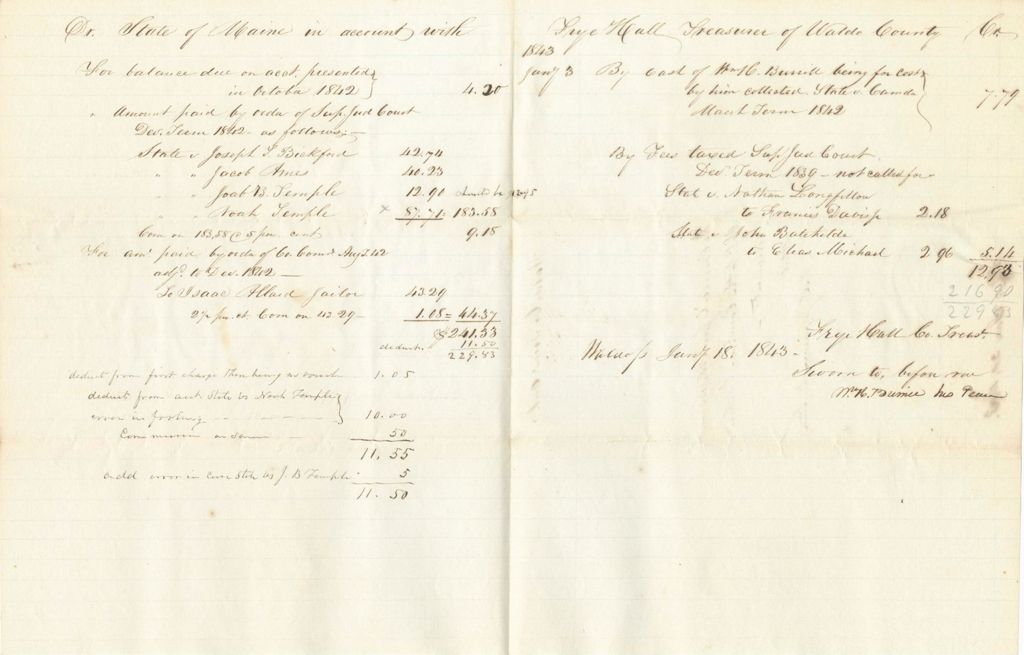 Dr. State of Maine in account with
For balance due on acct. presented
in October 1842 } 4.20
" Amount paid by order of Sup. Jud Court
Dec. Term 1842 - as follows; -
State v Joseph S. Bickford 42.74
" " Jacob Ames 40.23
" " Joab B. Temple 12.90 should be 12.95
" " Noah Temple × 87.71 = 183.58
Com on 183.58 @ 5 per. cent 9.18
For amt. paid by order of Co. Coms. Augt. 42
adjd. to Dec. 1842 —
To Isaac Allard Jailor 43.29
2½ per. ct. Com on 43.29 - 1.08 = 44.37
$241.33
deduct 11.50
229.83
deduct from first charge there being no vouch 1.05
deduct from act. State vs Noah Temple
error in footing } 10.00
Commission on same 50
11.55
add error in case State vs J. B Temple 5
11.50
Frye Hall Treasurer of Waldo County Cr.
1843
Jany 3 By cash of Wm H. Burrill being for costs
by him collected State v. Camden
March Term 1842 } 7.79
By Fees taxed Sup. Jud Court
Dec. Term 1839 - not called for
State v. Nathan Longfellow
to Francis 2.18
State v. John Batchelder
to Elias Michael 2 96 5.14
12.93
216 90
229 83
Frye Hall Co. Treasr.
Waldo ss Jany. 18. 1843 -
Sworn to, before me